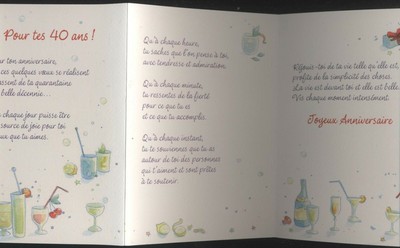 Pour tes 40 ans !
ton anniversaire,
ces quelques vœux se réalisent
de ta quarantaine
belle décennie...
chaque jour puisse être
source de joie pour toi
que tu aimes.
Qu'à chaque heure,
tu saches que l'on pense à toi,
avec tendresse et admiration.
Qu'à chaque minute,
tu ressentes de la fierté
pour ce que tu es
et ce que tu accomplis.
Qu'à chaque instant,
tu te souviennes que tu as
autour de toi des personnes
qui t'aiment et sont prêtes
à te soutenir.
Réjouis-toi de ta vie telle qu'elle est,
profite de la simplicité des choses.
La vie est devant toi et elle est belle.
Vis chaque moment intensément.
Joyeux Anniversaire